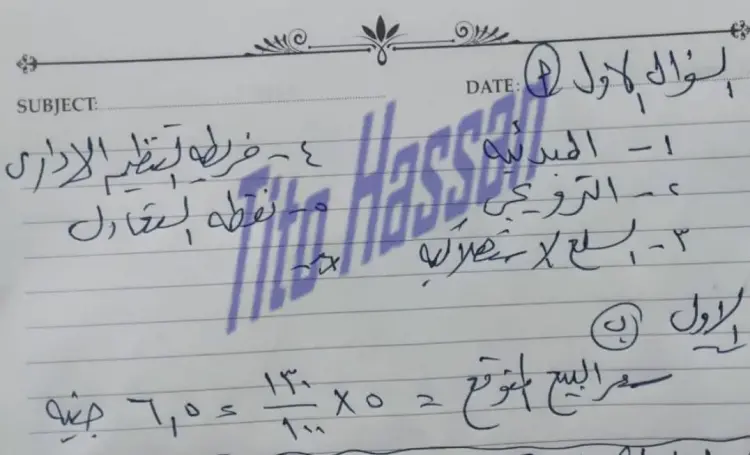 السؤال الاول (أ)
DATE:
SUBJECT:
١- المبدئية
٤- خريطة التنظيم الادارى
٢- الترويجى
٥- نقطة التعادل
٣- السلع الاستهلاكية
Tito Hassan
الاول (ب)
سعر البيع المتوقع = ٥ × ١٣٠/١٠٠ = ٦,٥ جنيه